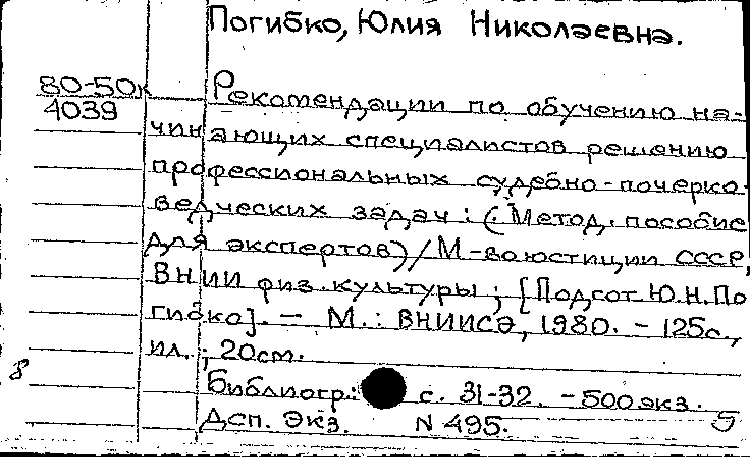 Погибко, Юлия Николаевна.
80-50к
4039
Рекомендации по обучению на-
чинающих специалистов решению
профессиональных судебно-почерко-
ведческих задач: (Метод. пособие
для экспертов) / М-во юстиции СССР,
ВНИИ физ. культуры; [Подгот. Ю.Н. По
гибко]. — М.: ВНИИСЭ, 1980. - 125с.,
ил.; 20см.
8
Библиогр.: с. 31-32. - 500 экз.
Дсп. Экз. N 495.